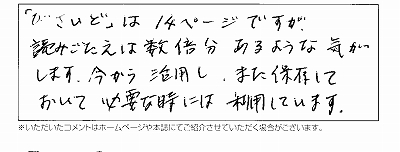 「びざいど」は14ページですが、
読みごたえは数倍分あるような気が
します。今から活用し、また保存して
おいて必要な時には利用しています。
※いただいたコメントはホームページや本誌にてご紹介させていただく場合がございます。